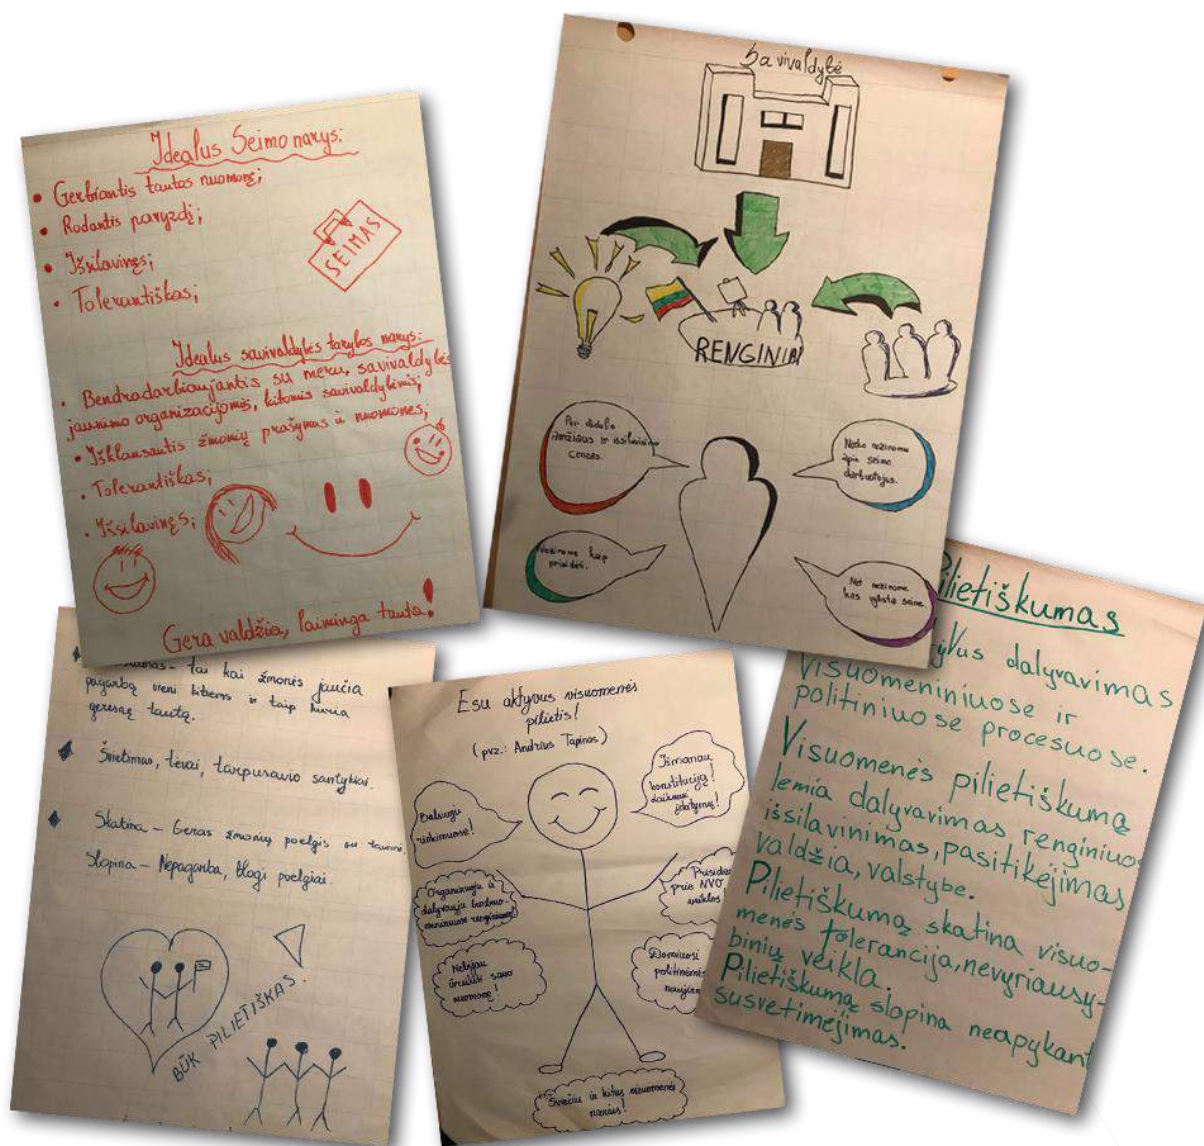 Idealus Seimo narys:
• Gerbiantis tautos nuomonę;
• Rodantis pavyzdį;
• Išsilavinęs;
• Tolerantiškas;
SEIMAS
Idealus savivaldybės tarybos narys:
• Bendradarbiaujantis su meru, savivaldybės
jaunimo organizacijomis, kitomis savivaldybėmis;
• Išklausantis žmonių prašymus ir nuomones;
• Tolerantiškas;
• Išsilavinęs;
Gera valdžia, laiminga tauta!
Savivaldybė
RENGINIAI
Per didelis
amžiaus ir išsilavinimo
cenzas.
Nieko nežinome
apie seimo
darbuotojus.
Nežinome kaip
prisidėti.
Net nežinome
kas vyksta seime.
tai kai žmonės jaučia
pagarbą vieni kitiems ir taip kuria
geresnę tautą.
Švietimas, tėvai, tarpusavio santykiai.
Skatina – Geras žmonių poelgis su tavimi.
Slopina – Nepagarba, blogi poelgiai.
BŪK PILIETIŠKAS.
Esu aktyvus visuomenės
pilietis!
(pvz.: Andrius Tapinas)
Balsuoju
rinkimuose!
Išmanau
konstituciją!
įstatymų!
Organizuoju ir
dalyvauju
renginiuose!
Prisided
prie NVO
veiklos
Nebijau
išreikšti savo
nuomonę!
Domiuosi
politinėmis
naujien
Šviečiu ir kitus visuomenės
narius!
Pilietiškumas
yvus dalyvavimas
visuomeniniuose ir
politiniuose procesuose.
Visuomenės pilietiškumą
lemia dalyvavimas renginiuos
išsilavinimas, pasitikėjimas
valdžia, valstybe.
Pilietiškumą skatina visuo-
menės tolerancija, nevyriausy-
binių veikla.
Pilietiškumą slopina neapykant
susvetimėjimas.